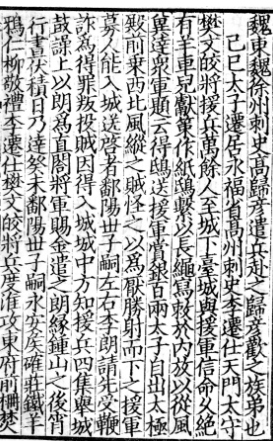 魏東魏徐州刺史高歸彥遣兵赴之歸彥歡之族弟也
己巳太子遷居永福省高州刺史李遷仕天門太守
樊文皎將援兵萬餘人至城下臺城與援軍信命久絶
有羊車兒獻策作紙鴟繫以長繩寫敕於内放以從風
冀達衆軍題云得鴟送援軍賞銀百兩太子自出太極
殿前乘西北風縱之賊怪之以爲厭勝射而下之援軍
募人能入城送啓者鄱陽世子嗣左右李朗請先受鞭
詐爲得罪叛投賊因得入城城中方知援兵四集舉城
鼓譟上以朗爲直閤將軍賜金遣之朗緣鍾山之後宵
行晝伏積日乃達癸未鄱陽世子嗣永安侯確莊鐵羊
鴉仁柳敬禮李遷仕樊文皎將兵度淮攻東府前柵焚